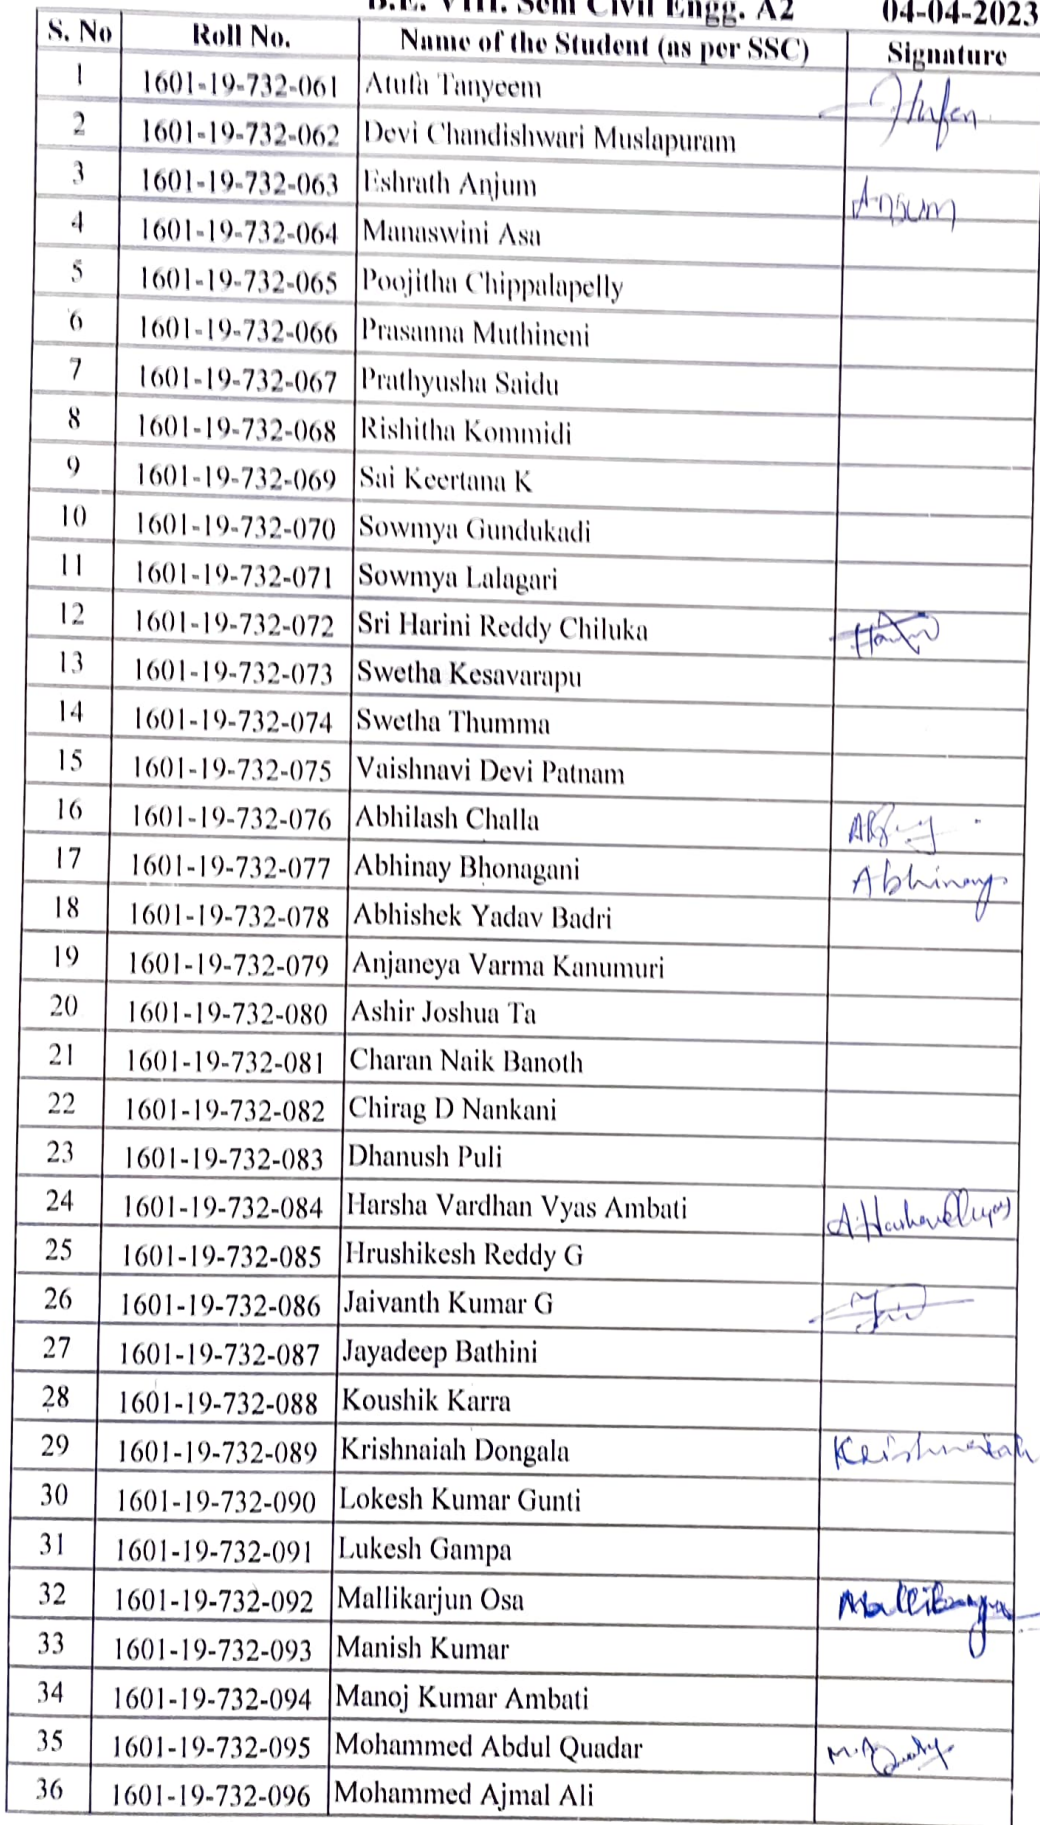 B.E. VIII. Sem Civil Engg. A2 04-04-2023
S. No Roll No. Name of the Student (as per SSC) Signature
1 1601-19-732-061 Atufa Tanyeem
2 1601-19-732-062 Devi Chandishwari Muslapuram
3 1601-19-732-063 Eshrath Anjum Anjum
4 1601-19-732-064 Manaswini Asa
5 1601-19-732-065 Poojitha Chippalapelly
6 1601-19-732-066 Prasanna Muthineni
7 1601-19-732-067 Prathyusha Saidu
8 1601-19-732-068 Rishitha Kommidi
9 1601-19-732-069 Sai Keertana K
10 1601-19-732-070 Sowmya Gundukadi
11 1601-19-732-071 Sowmya Lalagari
12 1601-19-732-072 Sri Harini Reddy Chiluka
13 1601-19-732-073 Swetha Kesavarapu
14 1601-19-732-074 Swetha Thumma
15 1601-19-732-075 Vaishnavi Devi Patnam
16 1601-19-732-076 Abhilash Challa
17 1601-19-732-077 Abhinay Bhonagani Abhinay
18 1601-19-732-078 Abhishek Yadav Badri
19 1601-19-732-079 Anjaneya Varma Kanumuri
20 1601-19-732-080 Ashir Joshua Ta
21 1601-19-732-081 Charan Naik Banoth
22 1601-19-732-082 Chirag D Nankani
23 1601-19-732-083 Dhanush Puli
24 1601-19-732-084 Harsha Vardhan Vyas Ambati
25 1601-19-732-085 Hrushikesh Reddy G
26 1601-19-732-086 Jaivanth Kumar G
27 1601-19-732-087 Jayadeep Bathini
28 1601-19-732-088 Koushik Karra
29 1601-19-732-089 Krishnaiah Dongala Krishnaiah
30 1601-19-732-090 Lokesh Kumar Gunti
31 1601-19-732-091 Lukesh Gampa
32 1601-19-732-092 Mallikarjun Osa
33 1601-19-732-093 Manish Kumar
34 1601-19-732-094 Manoj Kumar Ambati
35 1601-19-732-095 Mohammed Abdul Quadar
36 1601-19-732-096 Mohammed Ajmal Ali